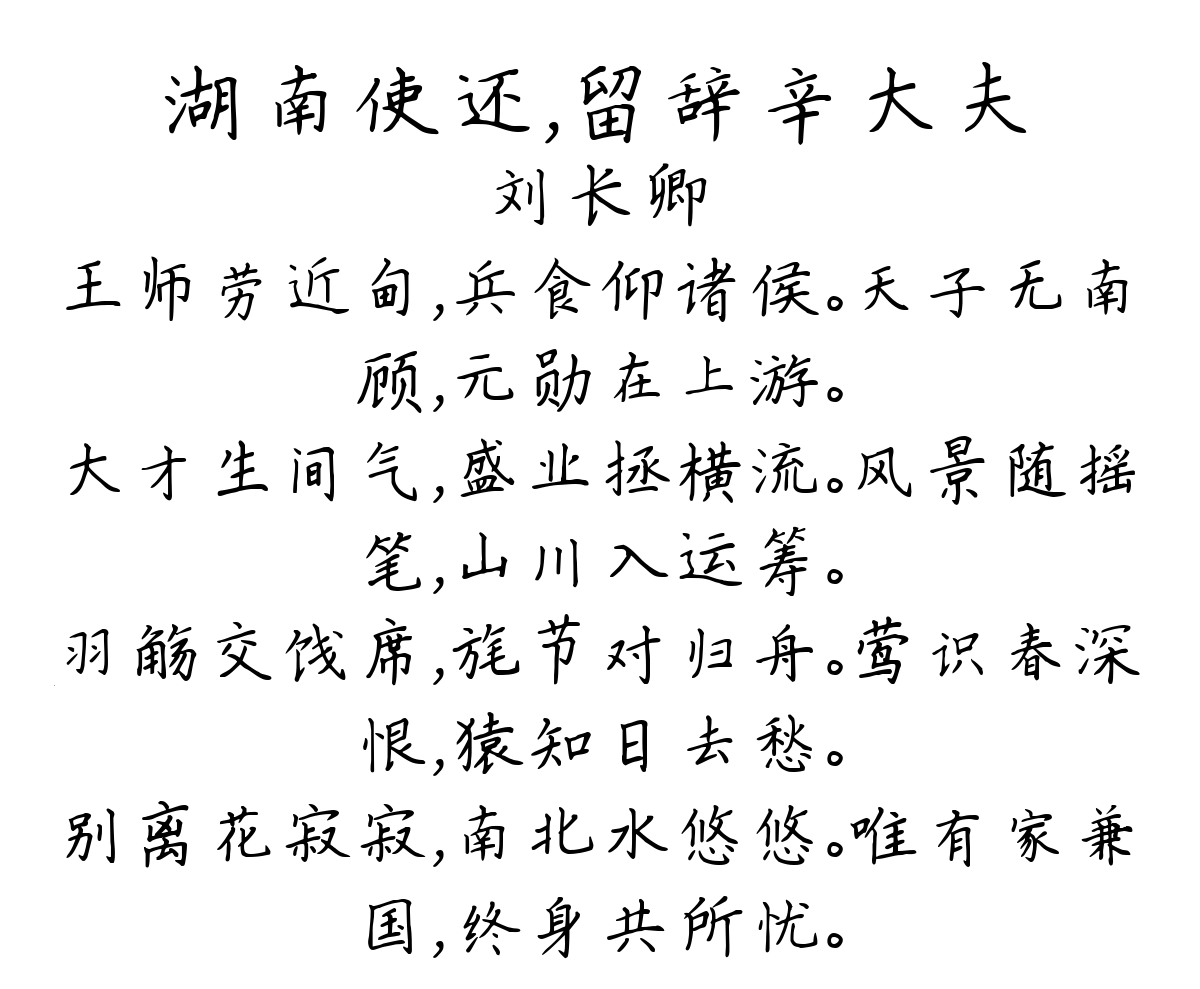 湖南使还,留辞辛大夫
刘长卿
王师劳近甸,兵食仰诸侯。天子无南
顾,元勋在上游。
大才生间气,盛业拯横流。风景随摇
笔,山川入运筹。
羽觞交饯席,旄节对归舟。莺识春深
恨,猿知日去愁。
别离花寂寂,南北水悠悠。唯有家兼
国,终身共所忧。